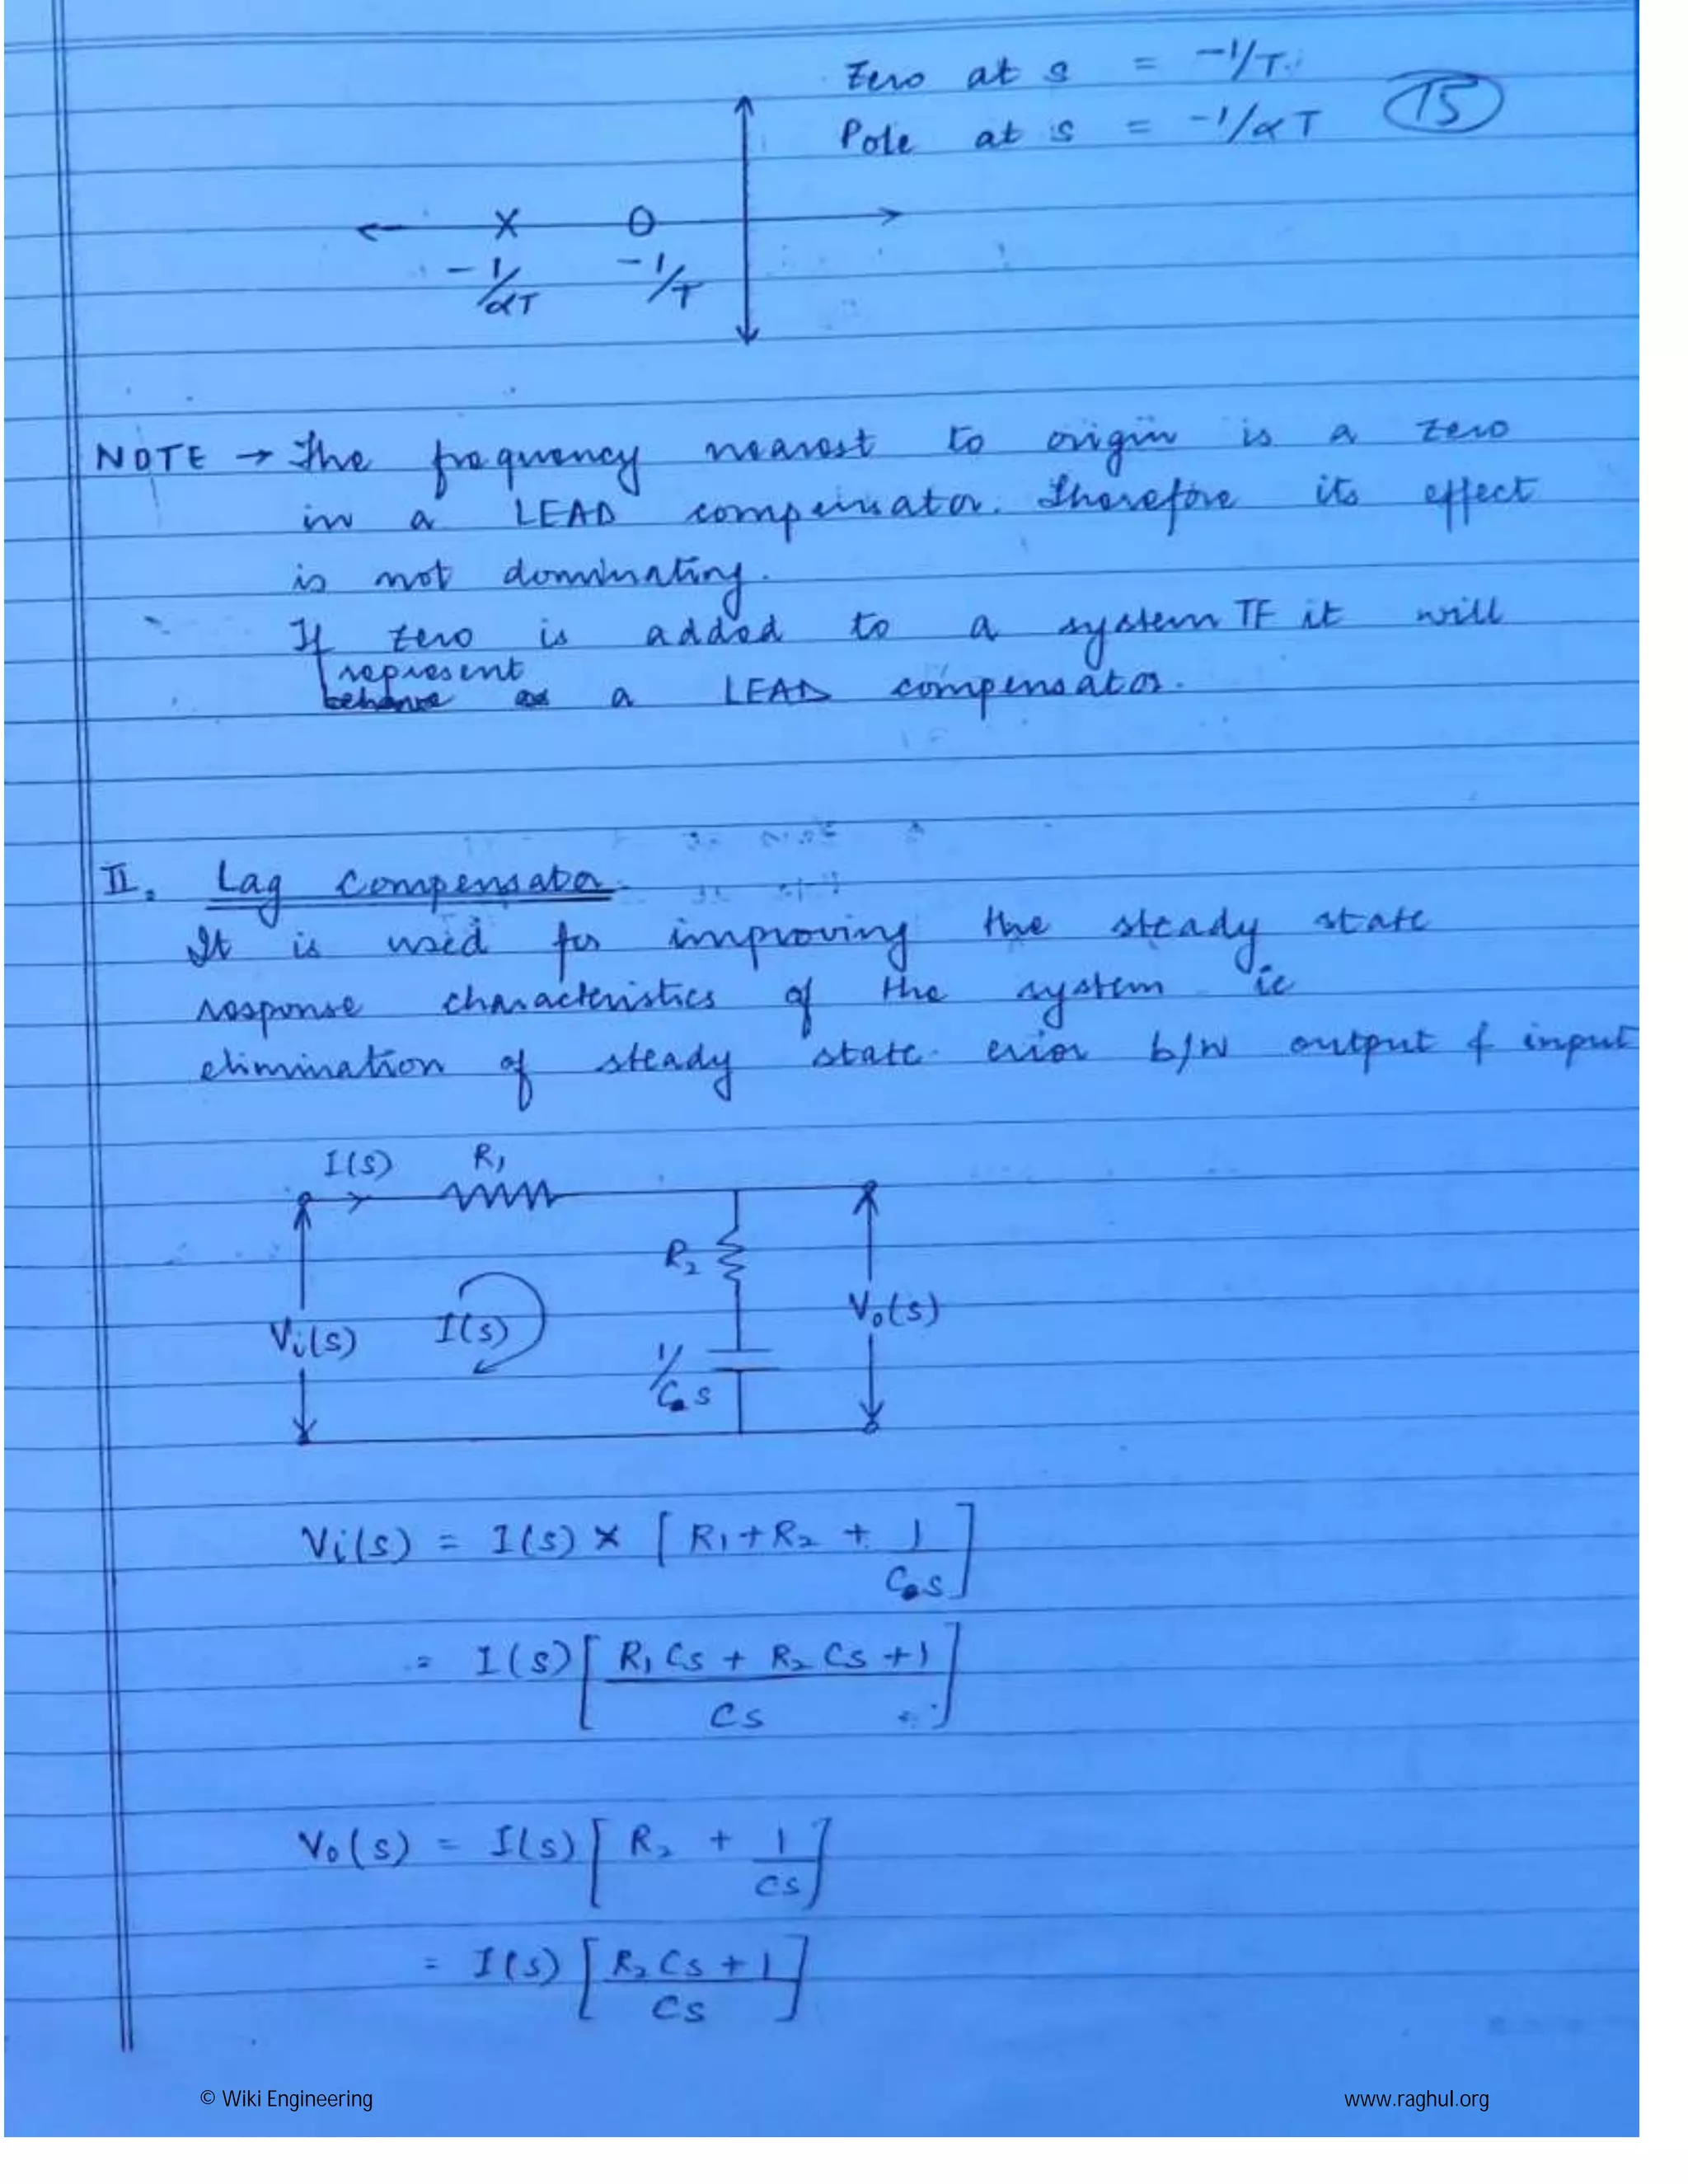 Zero at s = -1/T.
Pole at s = -1/αT
15
X O
-1/αT -1/T
NOTE → The frequency nearest to origin is a zero
in a LEAD compensator. Therefore its effect
is not dominating.
If zero is added to a system TF it will
represent
behave as a LEAD compensator.
II. Lag Compensator
It is used for improving the steady state
response characteristics of the system ie
elimination of steady state error b/w output & input
I(s) R1
R2
Vi(s) I(s) Vo(s)
1/Cs
Vi(s) = I(s) × [R1+R2 + 1/Cs]
= I(s) [R1Cs + R2Cs + 1 / Cs]
Vo(s) = I(s) [R2 + 1/Cs]
= I(s) [R2Cs + 1 / Cs]
© Wiki Engineering www.raghul.org